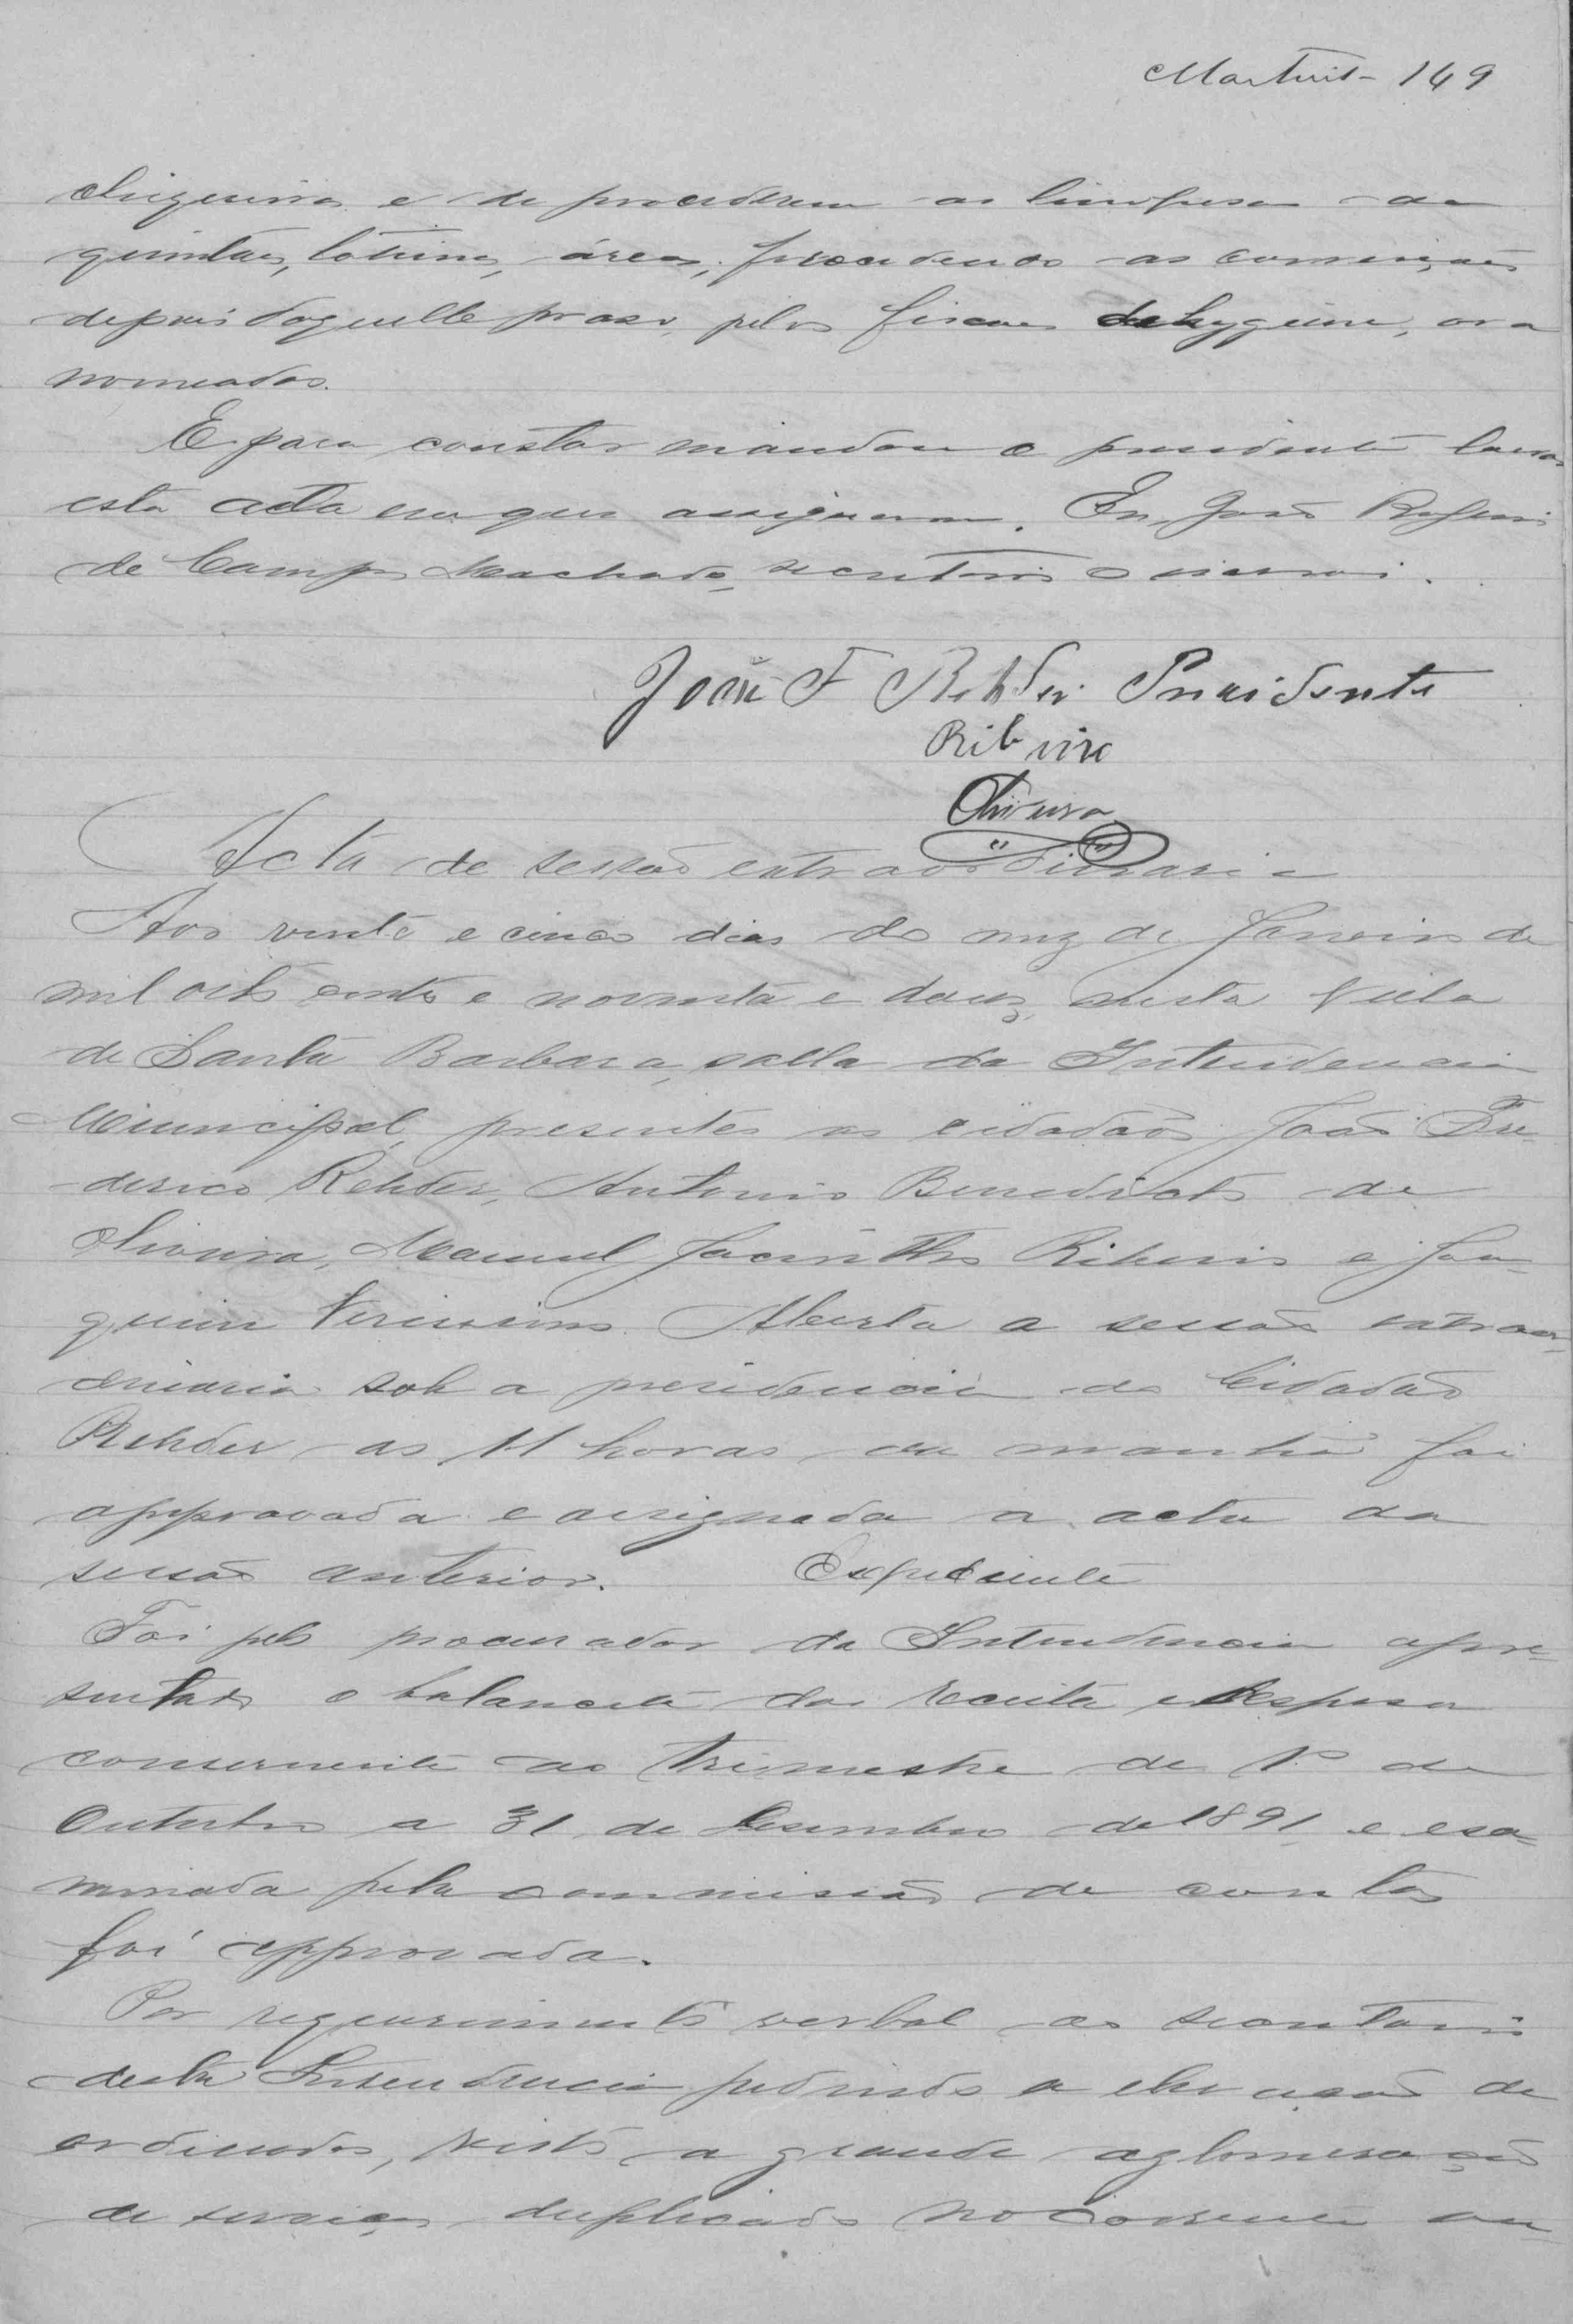 Martins - 149
chiqueiros e de procederem as limpesas de
quintaes, latrinas, áreas, procedendo as correições
depois daquelle praso, pelos fiscaes de hygiene, ora
nomeados.
E para constar mandou o presidente lavrar
esta acta em que assignaram. Eu, João
de Campos Machado, secretario o escrevi.
João F Rehder Presidente
Ribeiro
Oliveira
Acta de sessão extraordinaria
Aos vinte e cinco dias do mez de Janeiro de
mil oito centos e noventa e douz, nesta Villa
de Santa Barbara, salla da Intendencia
Municipal, presentes os cidadãos João Fre-
derico Rehder, Antonio Benedicto de
Oliveira, Manuel Jacintho Ribeiro e Joa-
quim Verissimo. Aberta a sessão extraor-
dinaria sob a presidencia do Cidadão
Rehder as 11 horas da manhã foi
approvada e assignada a acta da
sessão anterior. Expediente
Foi pelo procurador da Intendencia apre-
sentado o balancete da receita e despesa
concernente ao trimestre de 1º de
Outubro a 31 de Desembro de 1891 e exa-
minada pela commissão de contas
foi approvada.
Por requerimento verbal do secretario
desta Intendencia pedindo a elevação de
ordenados, visto a grande aglomeração
de serviços duplicado no corrente an-